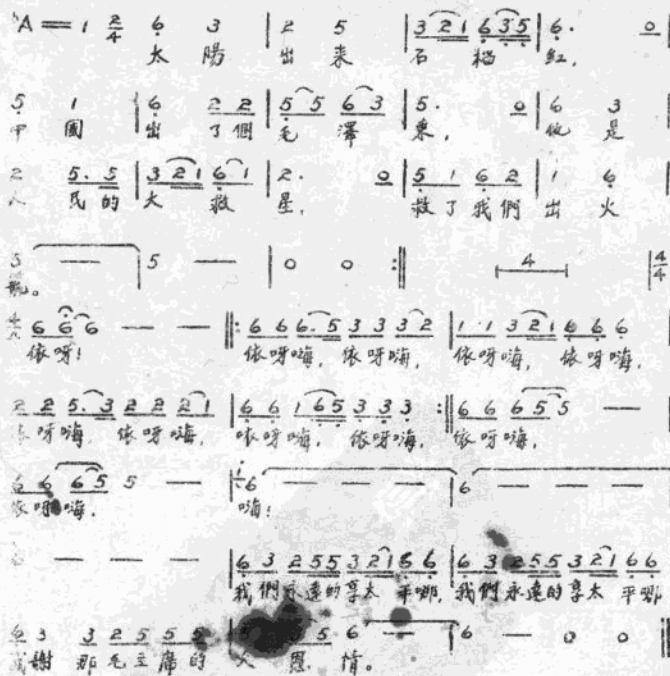 A = 1 2/4 6 3 | 2 5 | 3 2 1 6 3 5 | 6. 0
太 陽 出 来 石 紅,
5 1 | 6 2 2 | 5 5 6 3 | 5. 0 | 6 3
中 國 出 了個 毛 澤 東, 他 是
2 5. 5 | 3 2 1 6 1 | 2. 0 | 5 1 6 2 | 1 6
人 民的 太 救 星, 救了我們 出 火
5 — | 5 — | 0 0 :|| 4 | 4/4
6 6 6 — — ||: 6 6 6. 5 3 3 3 2 | 1 1 3 2 1 6 6 6
依呀! 依呀嗨, 依呀嗨, 依呀嗨, 依呀嗨,
2 2 5. 3 2 2 2 1 | 6 6 1 6 5 3 3 3 :|| 6 6 6 5 5 —
依呀嗨, 依呀嗨, 依呀嗨, 依呀嗨, 依呀嗨,
6 6 6 5 5 — — | 6 — — — | 6 — — —
依呀嗨, 嗨!
6 — — — | 6 3 2 5 5 3 2 1 6 6 | 6 3 2 5 5 3 2 1 6 6
我們永遠的享太 平哪, 我們永遠的享太 平哪
6 3 3 2 5 5 5 | 3 5 6 — | 6 — 0 0 ||
感謝 那毛主席的 大 恩 情。